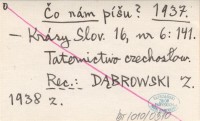 Čo nám píšu? 1937.
— Krásy Slov. 16, nr 6: 141.
Taternictwo czechosłow.
Rec.: DĄBROWSKI Z.
1938 z.